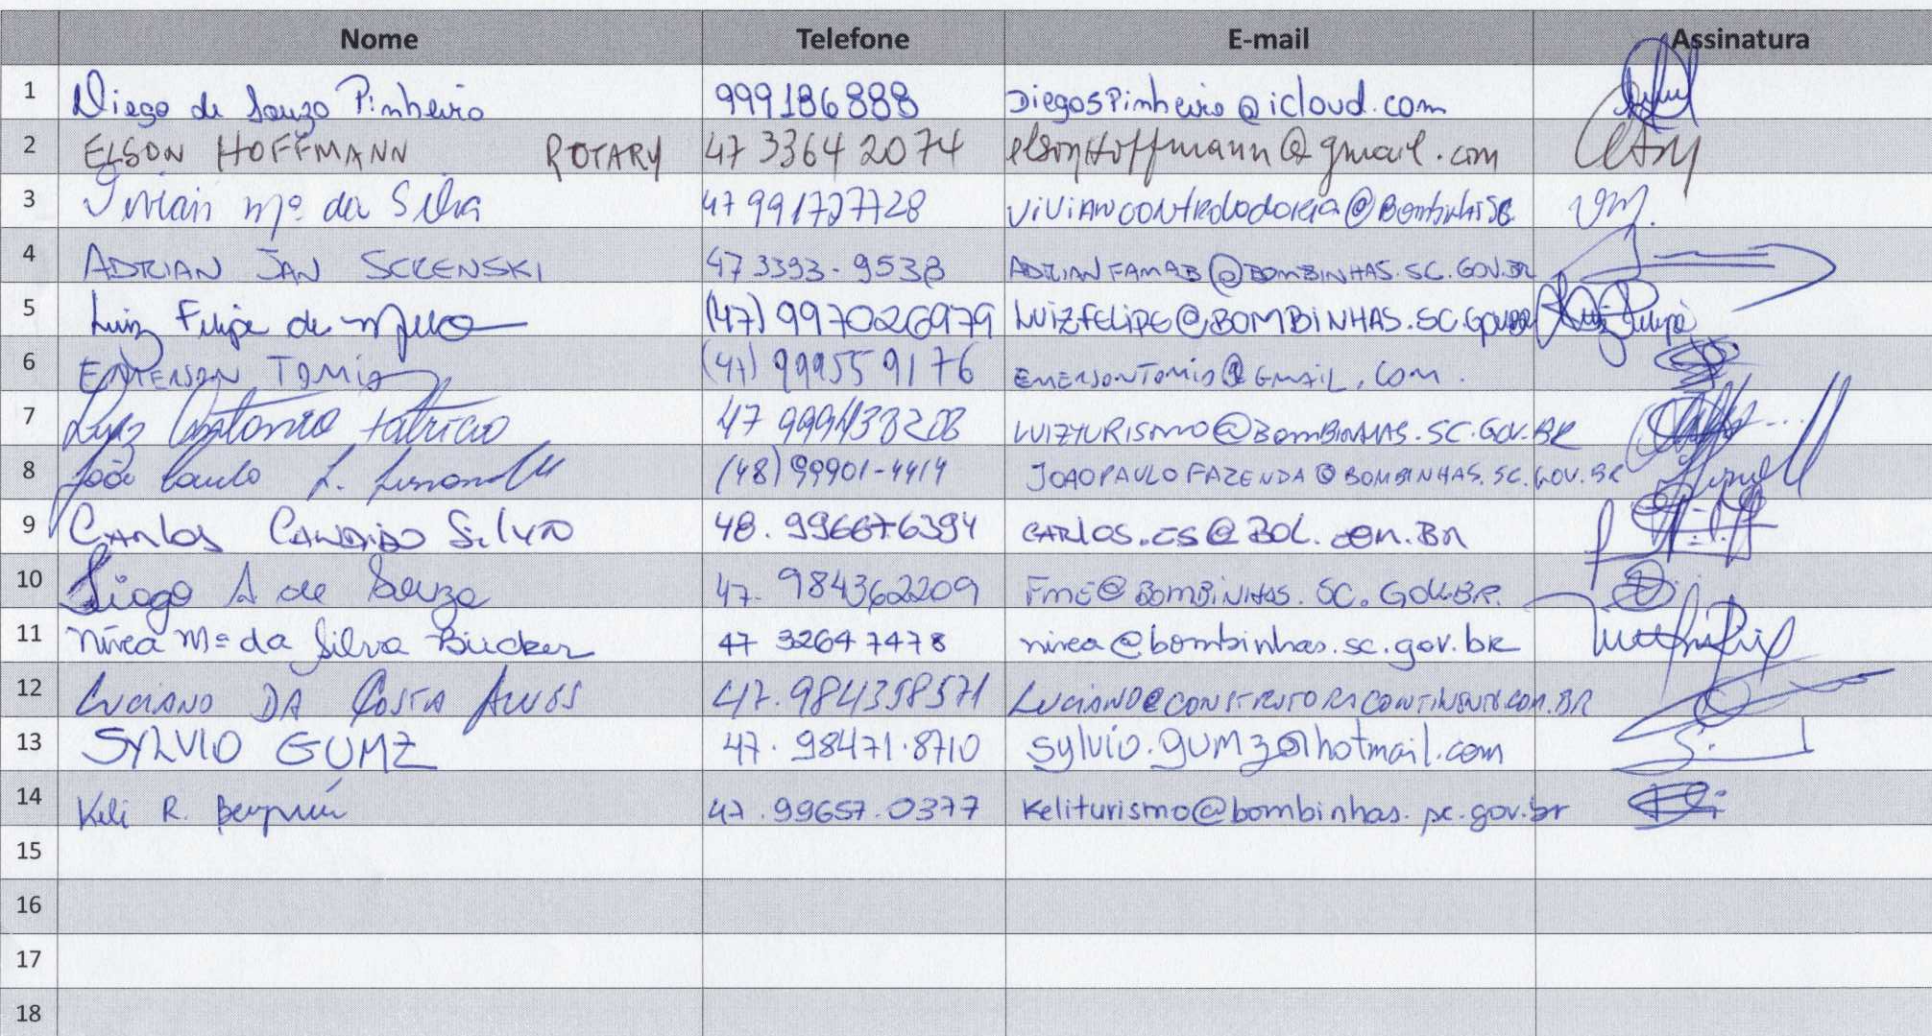 Nome Telefone E-mail Assinatura
1 Diego de Souza Pinheiro 999186888 DiegosPinheiro@icloud.com
2 ELSON HOFFMANN ROTARY 47 3364 2074 elsonHoffmann@gmail.com
3 Vivian Mª da Silva 47 991727728
4 ADRIAN JAN SCRENSKI 47 3393-9538 ADRIANFAMAB@BOMBINHAS.SC.GOV.BR
5 Luiz Felipe de Mello (47) 997026979 LUIZFELIPE@BOMBINHAS.SC.GOV.BR
6 EMERSON TOMIO (47) 999559176 EMERSONTOMIO@GMAIL.COM.
7 Luiz Antonio Patricio 47 LUIZTURISMO@BOMBINHAS.SC.GOV.BR
8 João Paulo L. (48) 99901-4414 JOAOPAULOFAZENDA@BOMBINHAS.SC.GOV.BR
9 CARLOS CANDIDO SILVA 48. 996676394 CARLOS.CS@BOL.COM.BR
10 Diogo A de Souza 47. 984362209 FME@BOMBINHAS.SC.GOV.BR.
11 Nívea Mª da Silva Bücker 47 3264 7478 nivea@bombinhas.sc.gov.br
12 LUCIANO DA COSTA ALVES 47.984358571 LUCIANO@CONSTRUTORACONTINENTE.COM.BR
13 SYLVIO GUMZ 47. 98471.8710 sylvio.gumz@hotmail.com
14 Keli R. 47.99657.0377 Keliturismo@bombinhas.sc.gov.br
15
16
17
18